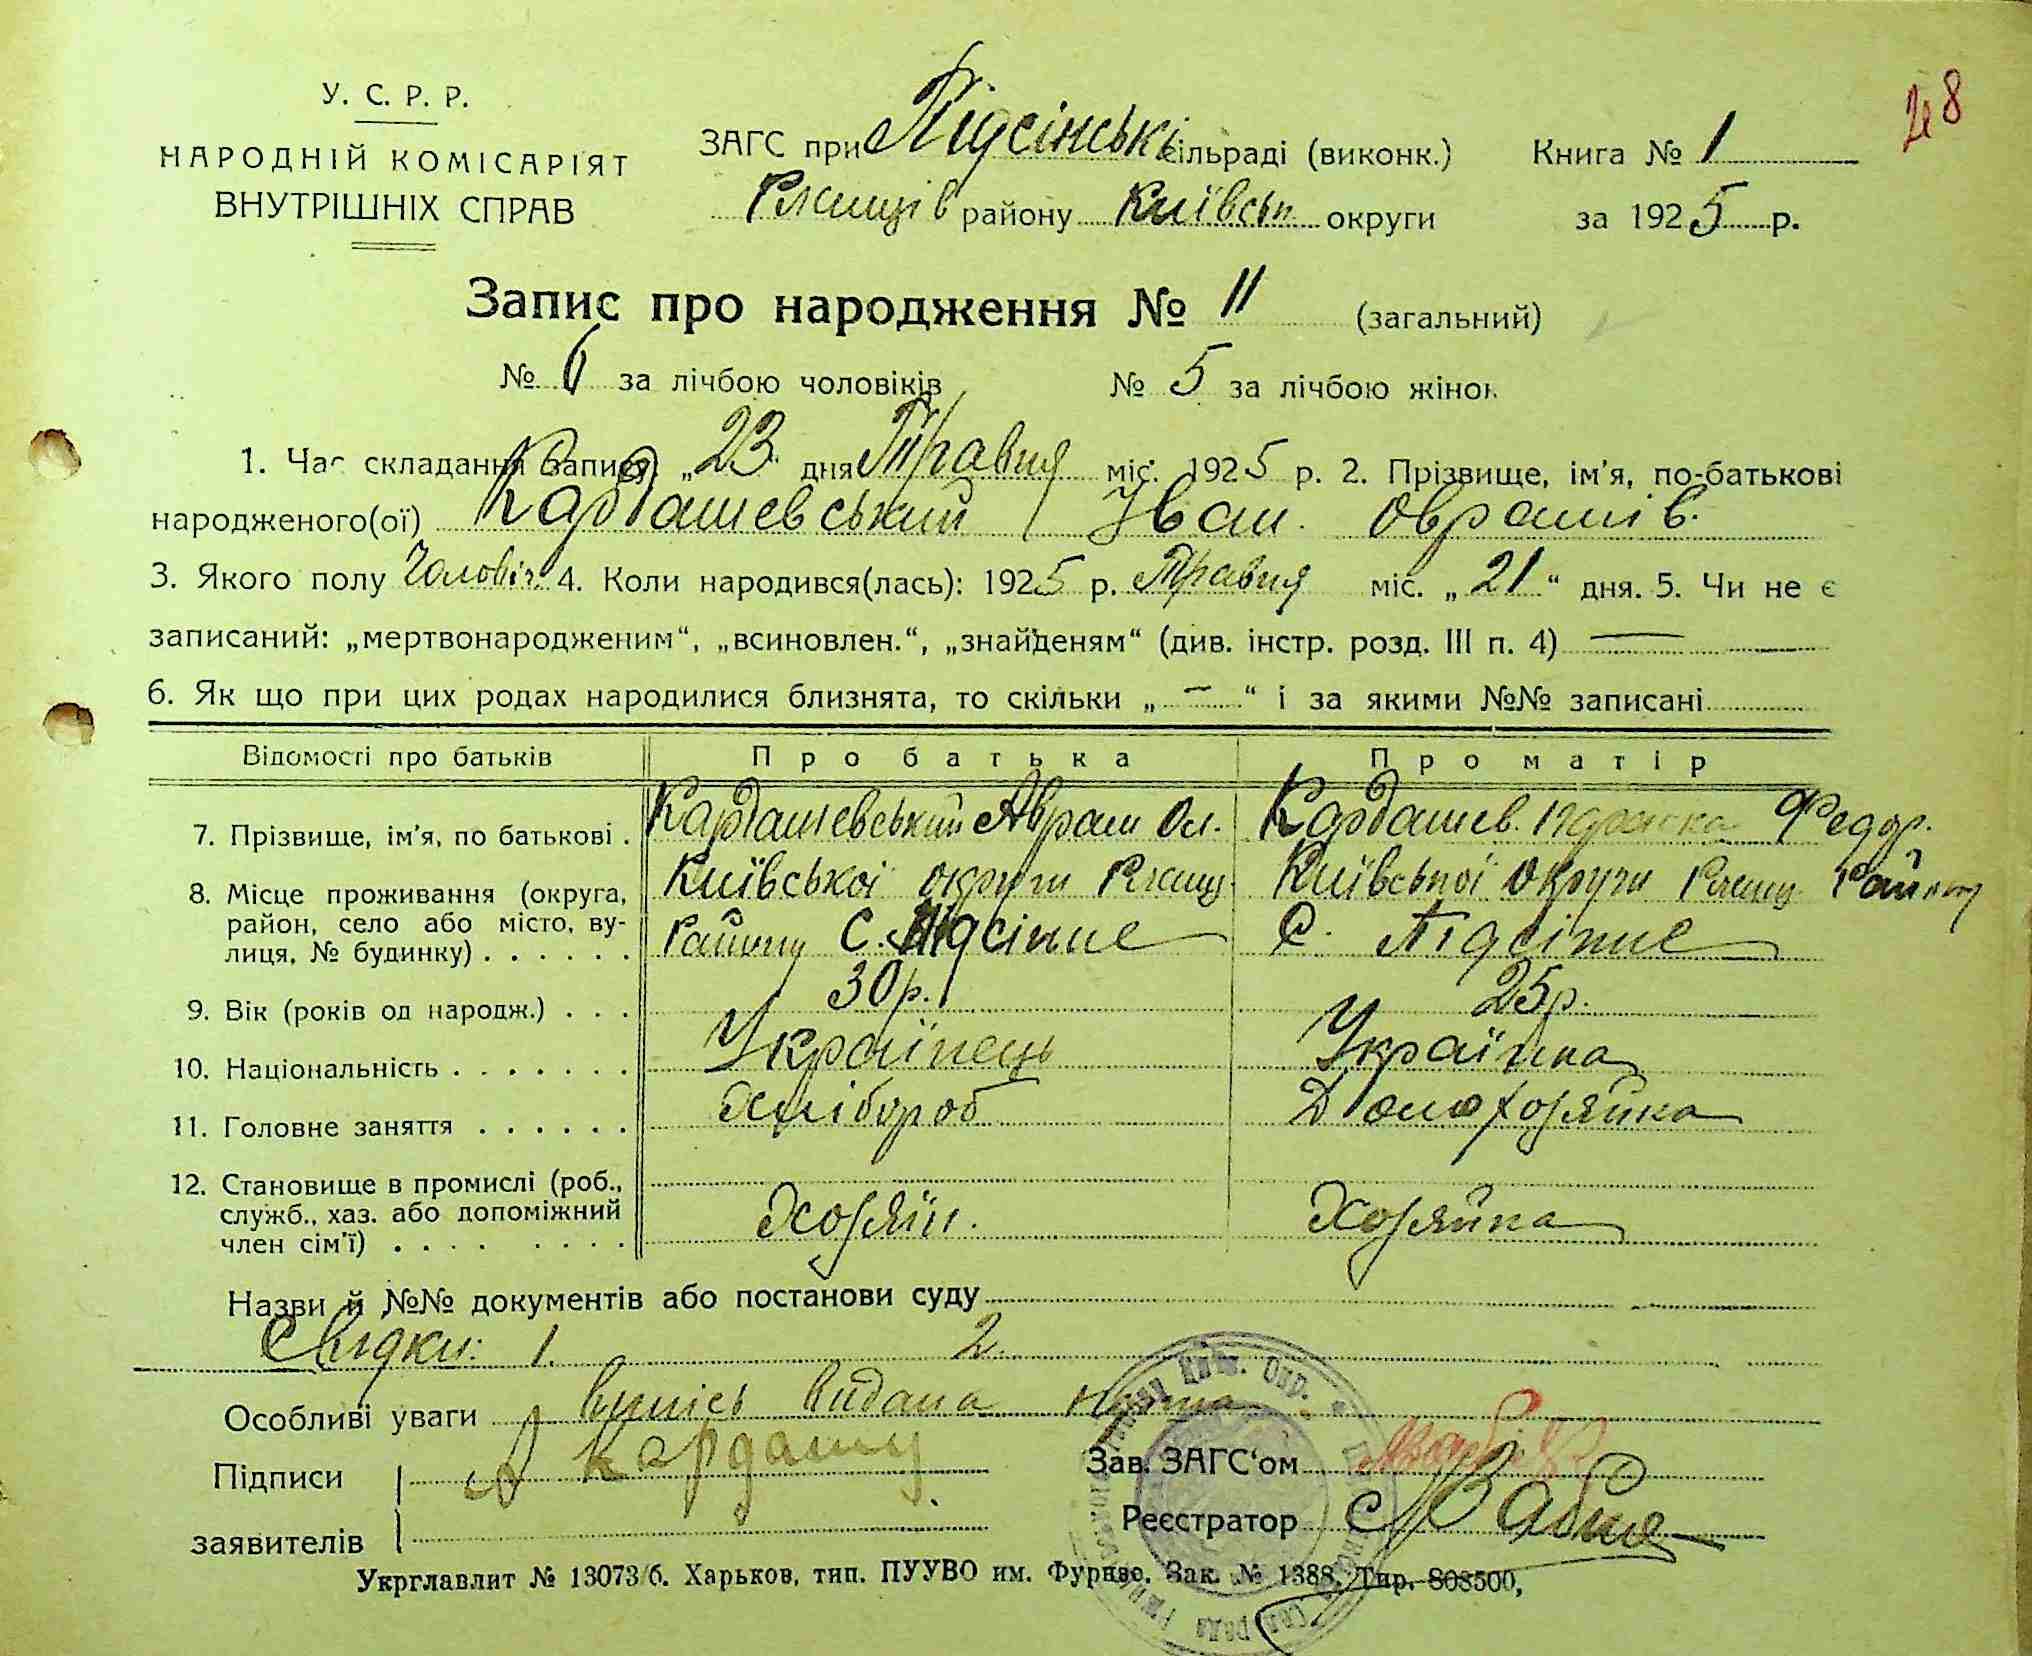 28
У. С. Р. Р.
НАРОДНІЙ КОМІСАРІЯТ
ВНУТРІШНІХ СПРАВ
ЗАГС при Підсінські сільраді (виконк.) Книга № 1
Ржищів району Київськ округи за 1925 р.
Запис про народження № 11 (загальний)
№ 6 за лічбою чоловіків № 5 за лічбою жінок
1. Час складання запису „23 дня Травня міс. 1925 р. 2. Прізвище, ім'я, по-батькові
народженого(ої) Кардашевський Іван Оврамів.
3. Якого полу Чоловіч. 4. Коли народився(лась): 1925 р. Травня міс. „21“ дня. 5. Чи не є
записаний: „мертвонародженим“, „всиновлен.“, „знайденям“ (див. інстр. розд. III п. 4) —
6. Як що при цих родах народилися близнята, то скільки „—“ і за якими №№ записані
Відомості про батьків Про батька Про матір
7. Прізвище, ім'я, по батькові . Кардашевський Аврам Ол. Кардашев. Параска Федор.
8. Місце проживання (округа, Київської округи Ржищ. Київської Округи Ржищ. Району
район, село або місто, ву- Району С. Підсінне С. Підсінне
лиця, № будинку) . . . . . .
9. Вік (років од народж.) . . . 30 р. 25 р.
10. Національність . . . . . . . Українець Українка
11. Головне заняття . . . . . . Хлібороб Домохозяйка
12. Становище в промислі (роб.,
служб., хаз. або допоміжний Хозяїн. Хозяйка
член сім'ї) . . . . . . . .
Назви й №№ документів або постанови суду
Свідки: 1. 2.
Особливі уваги випісь видана
Підписи А Кардаш Зав. ЗАГС'ом
заявителів Реєстратор
Укрглавлит № 13073/б. Харьков, тип. ПУУВО им. Фрунзе. Зак. № 1388. Тир. 803500,